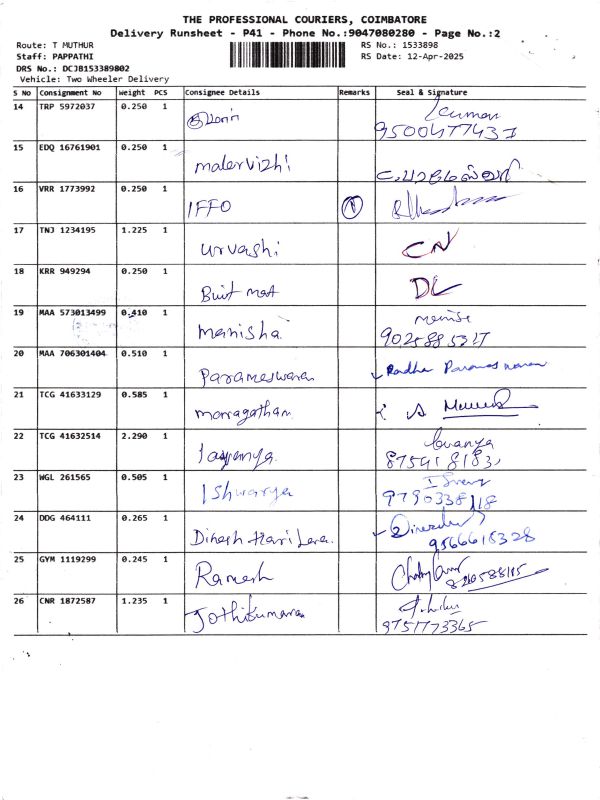 THE PROFESSIONAL COURIERS, COIMBATORE
Delivery Runsheet - P41 - Phone No.:9047080280 - Page No.:2
Route: T MUTHUR RS No.: 1533898
Staff: PAPPATHI RS Date: 12-Apr-2025
DRS No.: DCJB153389802
Vehicle: Two Wheeler Delivery
S No Consignment No Weight PCS Consignee Details Remarks Seal & Signature
14 TRP 5972037 0.250 1
15 EDQ 16761901 0.250 1
malervizhi
16 VRR 1773992 0.250 1
IFFO 1
17 TNJ 1234195 1.225 1
urvashi CN
18 KRR 949294 0.250 1
DL
19 MAA 573013499 0.410 1
Manisha
9025885327
20 MAA 706301404 0.510 1
Parameswaran Radha
21 TCG 41633129 0.585 1
22 TCG 41632514 2.290 1
23 WGL 261565 0.505 1
Ishwarya 9790338118
24 DDG 464111 0.265 1
Dinesh
9566615328
25 GYM 1119299 0.245 1
Ramesh
26 CNR 1872587 1.235 1
Jothikumaran
9751773365